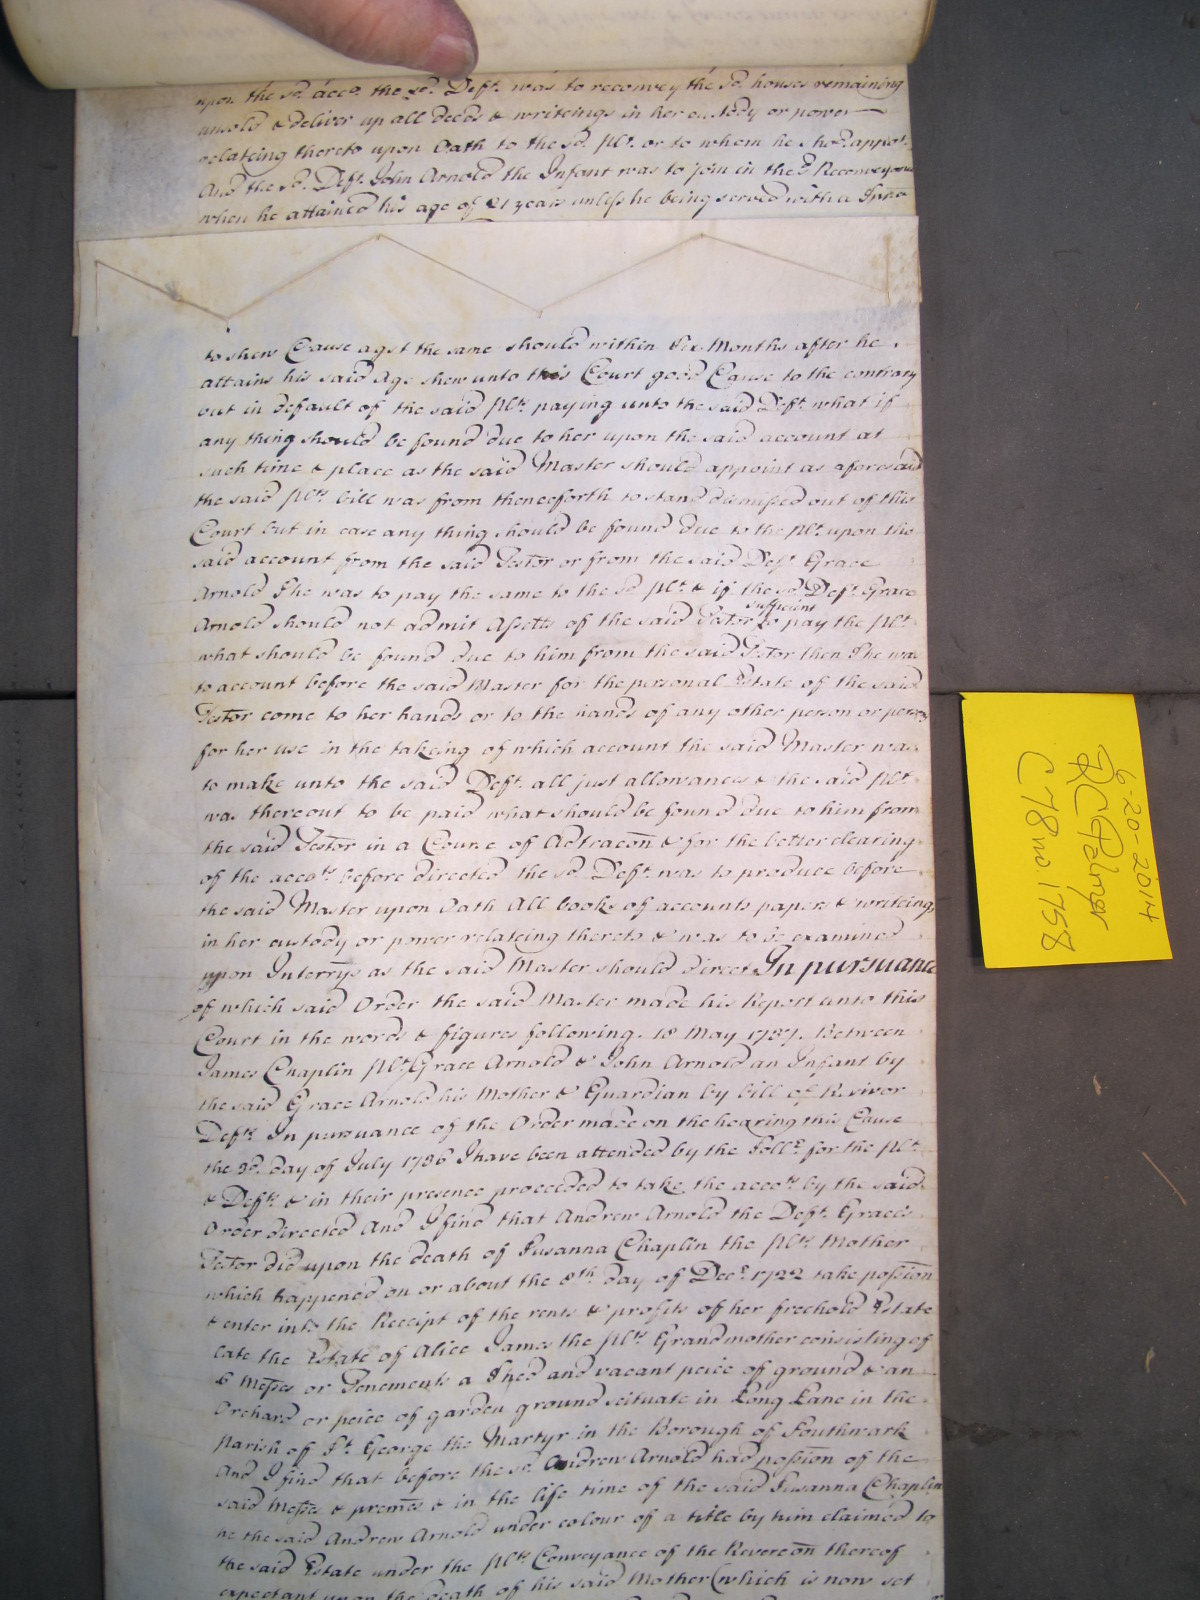 upon the sd. acco. the sd. Deft. was to reconvey the sd. houses remaining
unsold & deliver up all deeds & writeings in her custody or power
relateing thereto upon Oath to the sd. Plt. or to whom he shod. appot.
And the sd. Deft. John Arnold the Infant was to join in the sd. Reconveyance
when he attained his age of 21 years unless he being served with a Spna
to shew Cause agst the same should within Six Months after he
attains his said Age shew unto this Court good Cause to the contrary
but in default of the said Plts. paying unto the said Deft. what if
any thing should be found due to her upon the said account at
such time & place as the said Master should appoint as aforesaid
the said Plts. bill was from thenceforth to stand dismissed out of this
Court but in case any thing should be found due to the Plt. upon the
said account from the said Testor or from the said Deft. Grace
Arnold She was to pay the same to the sd. Plt. & if the sd. Deft. Grace
Arnold should not admit Assetts of the said Testor sufficient to pay the Plt.
what should be found due to him from the said Testor then She was
to account before the said Master for the personal Estate of the said
Testor come to her hands or to the hands of any other person or persons
for her use in the takeing of which account the said Master was
to make unto the said Deft. all just allowances & the said Plt.
was thereout to be paid what should be found due to him from
the said Testor in a Course of Admracon & for the better clearing
of the accots. before directed the sd. Deft. was to produce before
the said Master upon Oath All books of accounts papers & writeings
in her custody or power relateing thereto & was to be examined
upon Interrys as the said Master should direct In pursuance
of which said Order the said Master made his Report unto this
Court in the words & figures following. 18 May 1737. Between
James Chaplin Plt. Grace Arnold & John Arnold an Infant by
the said Grace Arnold his Mother & Guardian by bill of Revivor
Defts. In pursuance of the Order made on the hearing this Cause
the day of July 1736 I have been attended by the Sollrs. for the Plt.
& Defts. & in their presence proceeded to take the accots. by the said
Order directed And I find that Andrew Arnold the Deft. Grace's
Testor did upon the death of Susanna Chaplin the Plts. Mother
which happened on or about the 8th. day of Decr. 1722 take possion
& enter into the Receipt of the rents & profits of her freehold Estate
late the Estate of Alice James the Plts. Grandmother consisting of
6 Messes or Tenements a Shed and vacant peice of ground & an
Orchard or peice of garden ground scituate in Long Lane in the
Parish of St. George the Martyr in the Borough of Southwark
And I find that before the sd. Andrew Arnold had possion of the
said Messes & premes & in the life time of the said Susanna Chaplin
he the said Andrew Arnold under colour of a title by him claimed to
the said Estate under the Plts. Conveyance of the Revercon thereof
expectant upon the death of his said Mother (which is now set
6-20-2014
RC Palmer
C 78 no. 1758